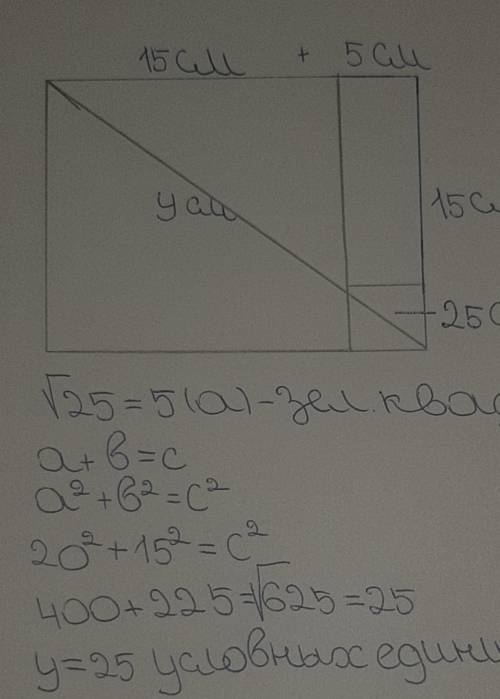 15см + 5см
усм
15с
25
√25=5(а)-зел.квад
а+в=с
а²+в²=с²
20²+15²=с²
400+225=√625=25
у=25 условных едини